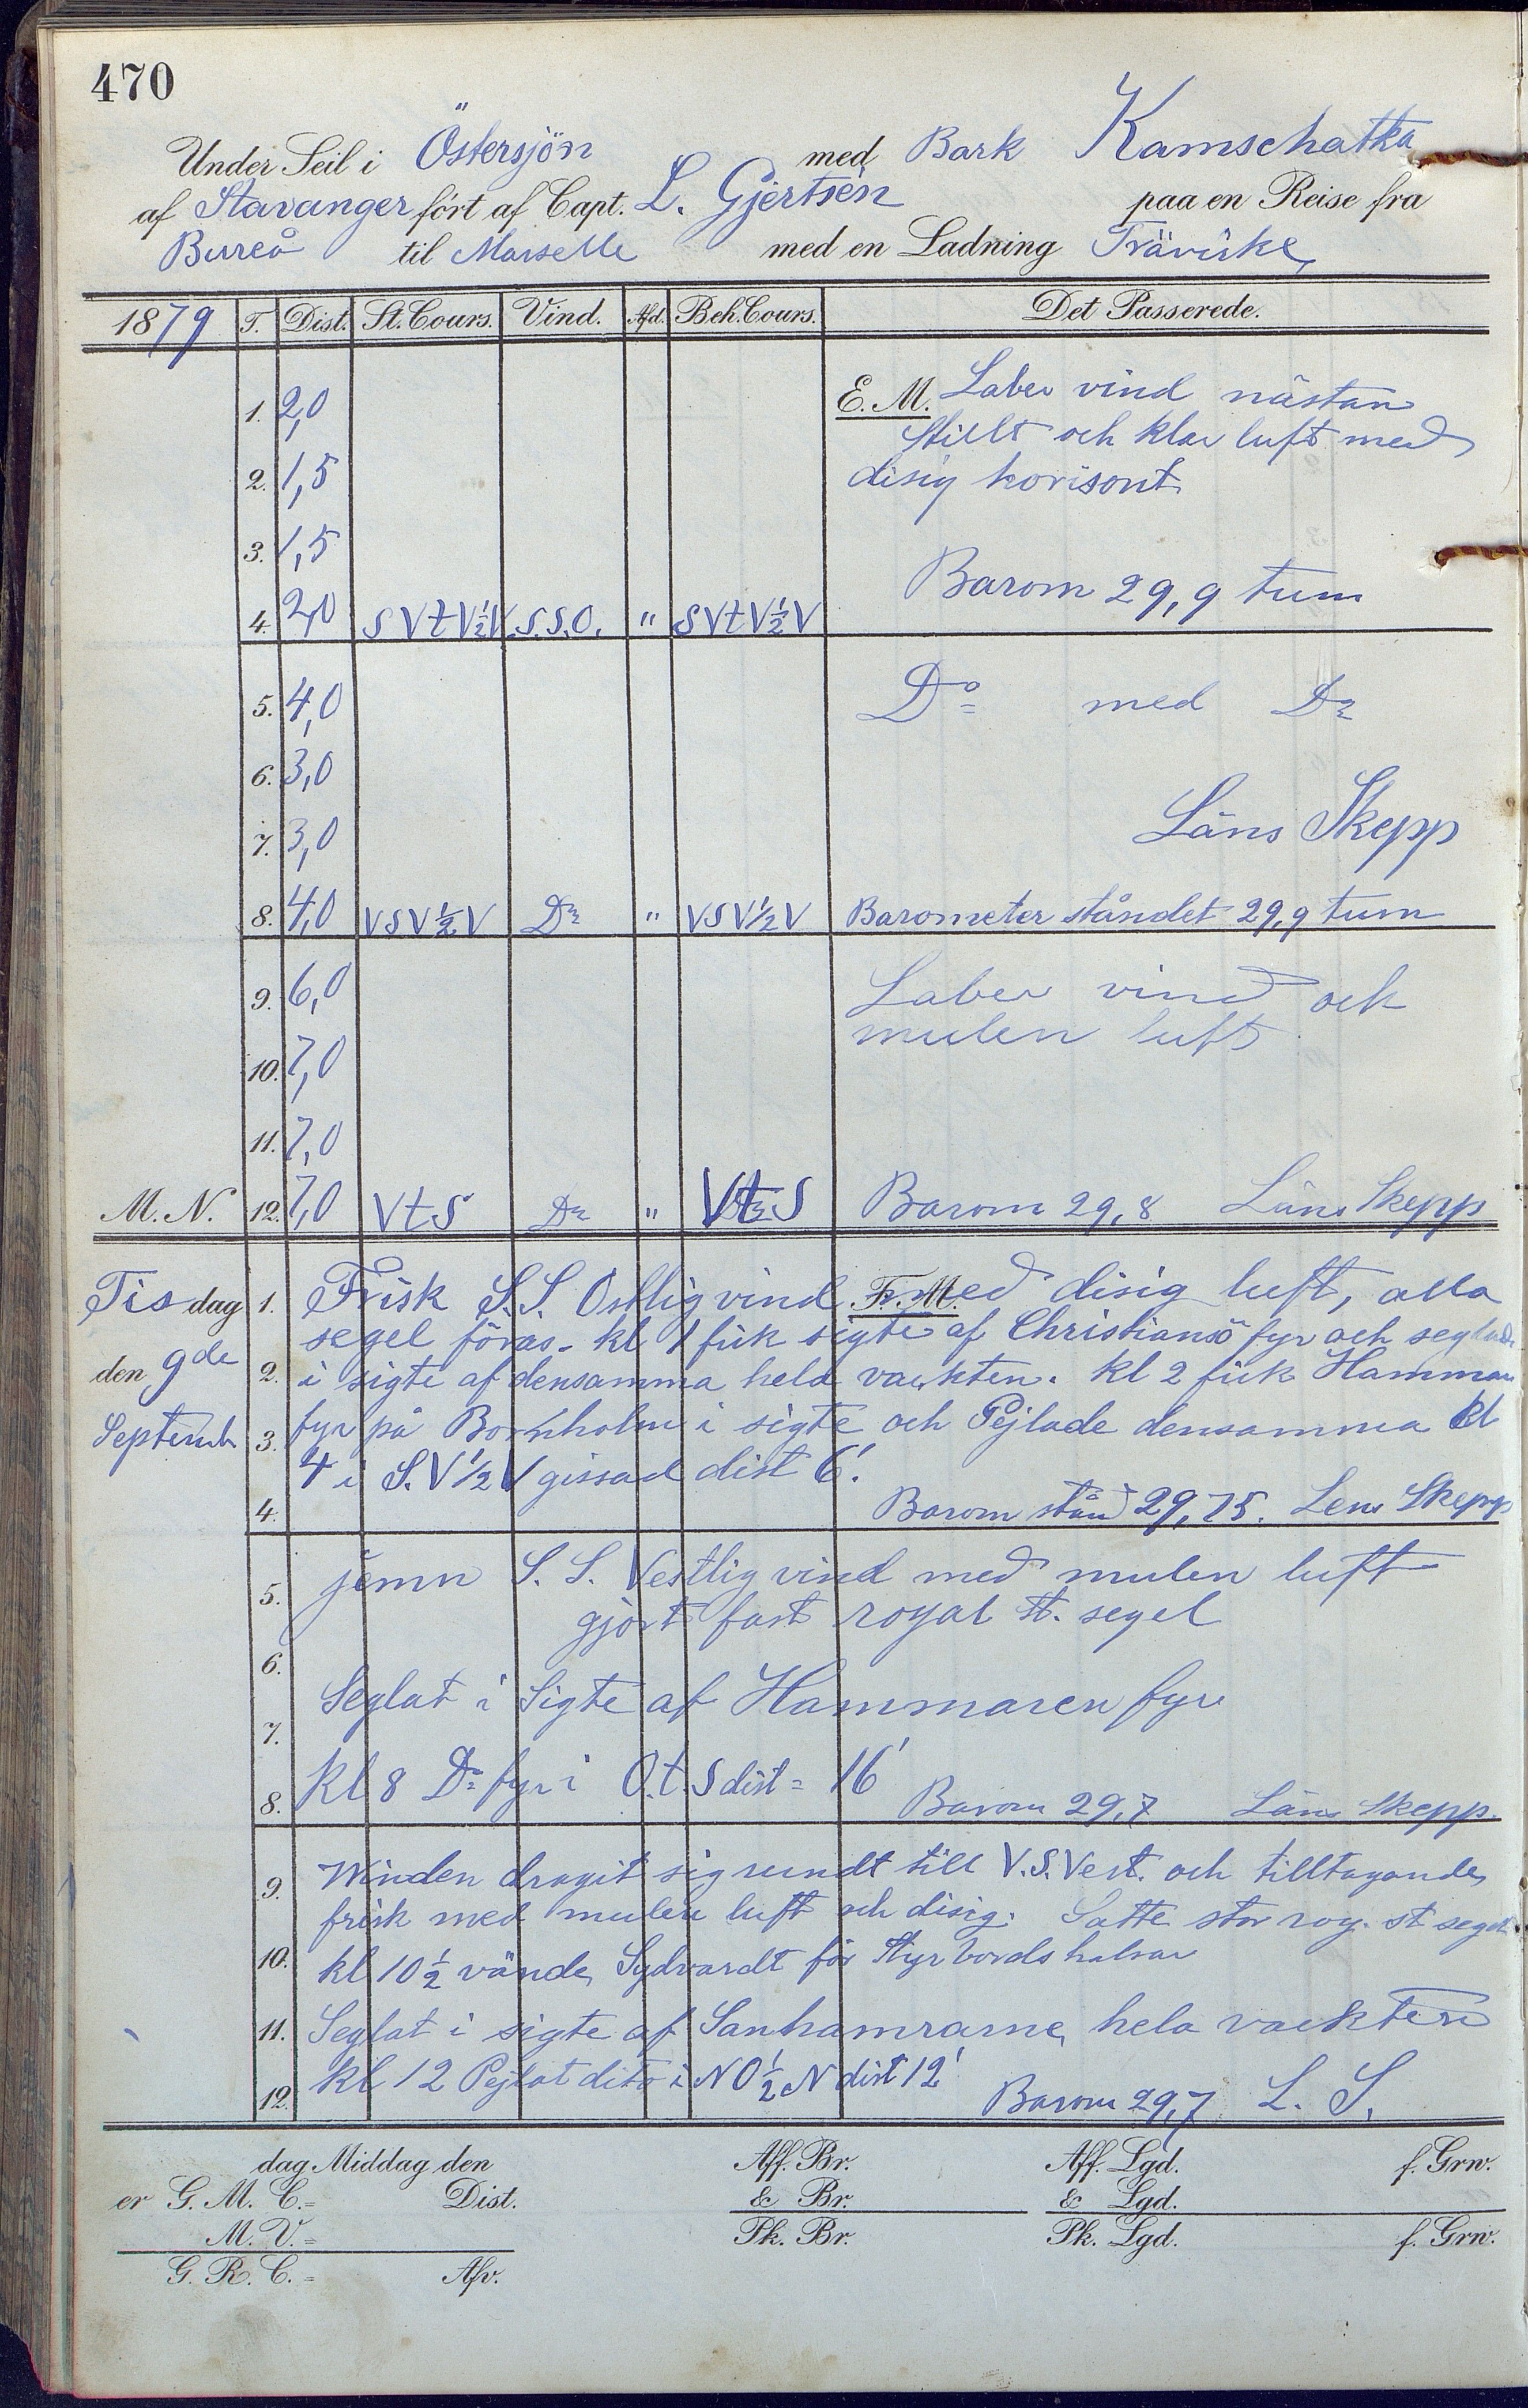 470
Under Seil i Östersjön med Bark Kamschatka
af Stavanger ført af Capt. L. Gjertsen paa en Reise fra
Bureå til Marselle med en Ladning Trävirke
1879 T. Dist. St. Cours. Vind. Afd. Beh. Cours. Det Passerede.
1. 2,0 E. M. Laber vind nästan
stillt och klar luft med
2. 1,5 disig horisont
3. 1,5
Barom 29,9 tum
4. 2,0 S V t V ½ V S.S.O. " S V t V ½ V
5. 4,0 Do med Do
6. 3,0
7. 3,0 Läns Skepp
8. 4,0 V S V ½ V Do " V S V ½ V Barometer ståndet 29,9 tum
9. 6,0 Laber vind och
mulen luft
10. 7,0
11. 7,0
M. N. 12. 7,0 V t S Do " V t S Barom 29,8 Läns Skepp
Tisdag 1. Frisk S.S. Ostlig vind Fr. M. med disig luft, alla
segel föras. kl 1 fick sigte af Christiansö fyr och seglade
den 9de 2. i sigte af densamma hela vackten. Kl 2 fick Hammaren
Septemb 3. fyr på Bornholm i sigte och Pejlade densamma kl
4 i S.V ½ V gissad dist 6'.
4. Barom stån 29,75. Lens Skepp
5. jemn S. S. Vestlig vind med mulen luft
gjort fast royal st. segel
6.
Seglat i Sigte af Hammaren fyr
7.
8. Kl 8 Do fyr i O.t.S dist = 16'
Barom 29,7 Läns Skepp.
9. Winden dragit sig rundt till V.S.Vest. och tilltagande
frisk med mulen luft och disig. Satte stor roy. st segel.
10. kl 10 ½ vände Sydvardt för Styrbords halsar
11. Seglat i sigte af Sanhamrarne hela vackten
12. kl 12 Pejlat dito i N O ½ N dist 12'
Barom 29,7 L. S.
dag Middag den Aff. Br. Aff. Lgd. f. Grw.
er G. M. C. = Dist. & Br. & Lgd.
M. V. = Pk. Br. Pk. Lgd. f. Grw.
G. R. C. = Afv.